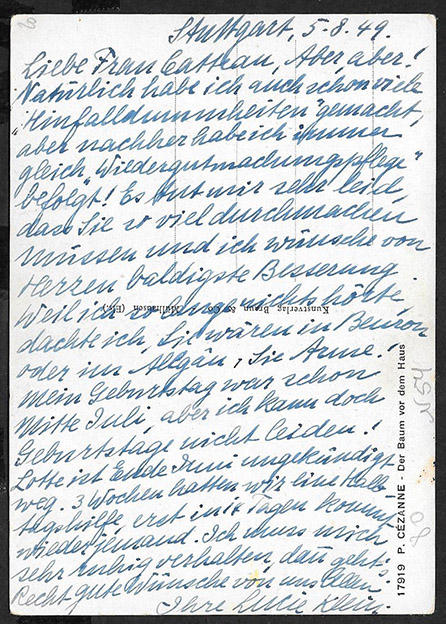 Stuttgart, 5.8.49.
Liebe Frau Catteau, Aber aber!
Natürlich habe ich auch schon viele
"Hinfalldummheiten" gemacht,
aber nachher habe ich immer
gleich "Wiedergutmachungspflege"
befolgt! Es tut mir sehr leid,
dass Sie so viel durchmachen
müssen und ich wünsche von
Herzen baldigste Besserung.
Weil ich nichts hörte,
dachte ich, Sie wären in Beuron
oder im Allgäu, Sie Arme!
Mein Geburtstag war schon
Mitte Juli, aber ich kann doch
Geburtstage nicht leiden!
Lotte ist Ende Juni ungekündigt
weg. 3 Wochen hatten wir eine Halb-
tagshilfe, erst in 14 Tagen kommt
wieder jemand. Ich muss mich
sehr ruhig verhalten, dann geht's.
Recht gute Wünsche von uns Allen
Ihre Lucie Klein.
Kunstverlag Braun & Co., Mülhausen (Els.)
17919 P. CÉZANNE - Der Baum vor dem Haus
N54
80